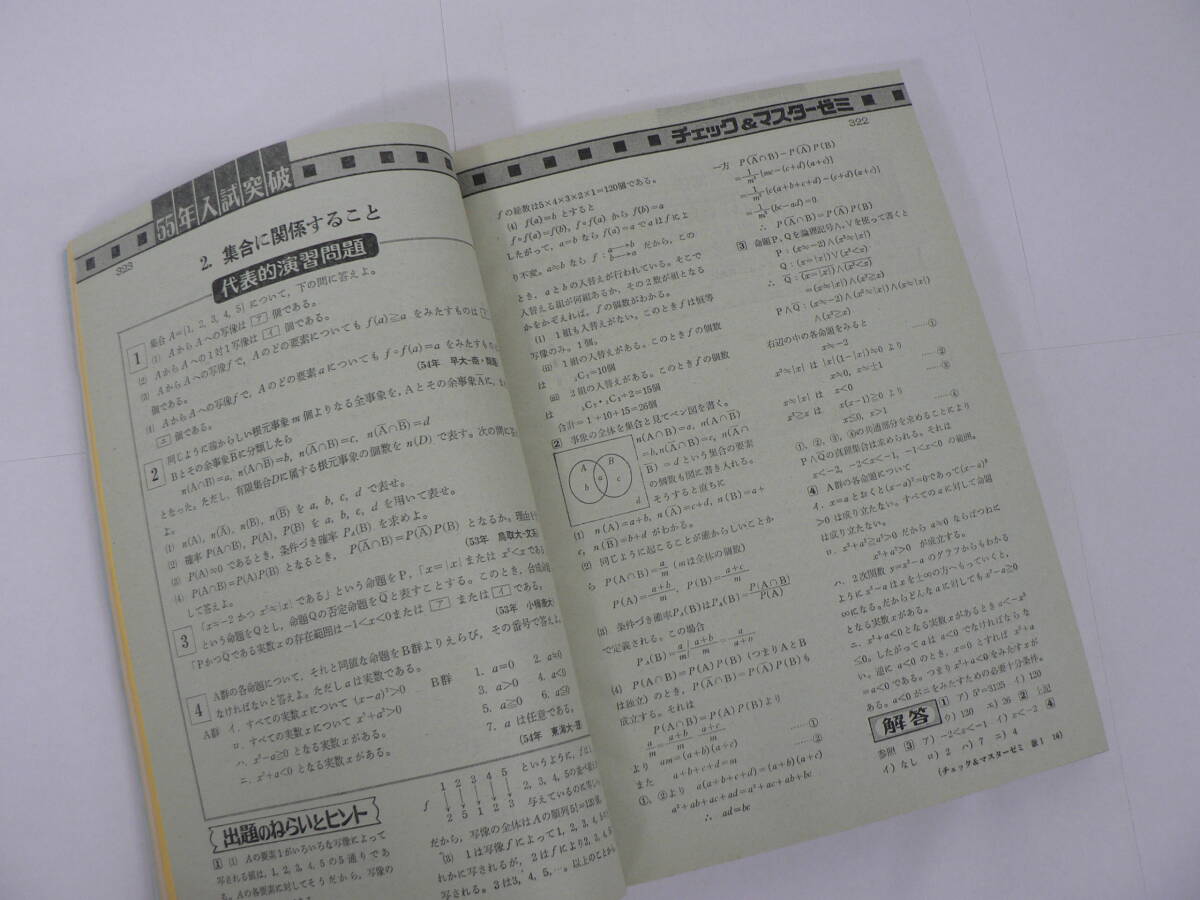 55年入試突破
323
2. 集合に関係すること
代表的演習問題
1 集合 A={1, 2, 3, 4, 5} について, 下の問に答えよ。
(1) AからAへの写像は ア 個である。
(2) AからAへの1対1写像は イ 個である。
(3) AからAへの写像 f で, Aのどの要素についても f(a)≧a をみたすものは
個である。
(4) AからAへの写像 f で, Aのどの要素 a についても f∘f(a)=a をみたすもの
エ 個である。
(54年 早大一商・
2 同じように確からしい根元事象 m 個よりなる全事象を, Aとその余事象A̅に,
Bとその余事象B̅に分類したら
n(A∩B)=a, n(A∩B̅)=b, n(A̅∩B)=c, n(A̅∩B̅)=d
となった。ただし, 有限集合Dに属する根元事象の個数を n(D) で表す。次の問に答え
よ。
(1) n(A), n(A̅), n(B), n(B̅) を a, b, c, d で表せ。
(2) 確率 P(A∩B), P(A), P(B) を a, b, c, d を用いて表せ。
(3) P(A)≠0 であるとき, 条件づき確率 P_A(B) を求めよ。
(4) P(A∩B)=P(A)P(B) となるとき, P(A̅∩B)=P(A̅)P(B) となるか。理由を
して答えよ。
(53年 鳥取大-文系)
3 「x≒-2 かつ x²≒|x| である」という命題をP, 「x=|x| または x²<x である」
という命題をQとし, 命題Qの否定命題をQ̅と表すことする。このとき, 合成命題
「PかつQ̅である実数 x の存在範囲は -1<x<0 または ア または イ である,
(53年 小樽商大)
4 A群の各命題について, それと同値な命題をB群よりえらび, その番号で答えよ。
なければないと答えよ。ただし a は実数である。
A群 イ. すべての実数 x について (x-a)²>0
ロ. すべての実数 x について x²+a²>0
ハ. x²-a≧0 となる実数 x がある。
ニ. x²+a<0 となる実数 x がある。
B群 1. a=0 2. a≒0
3. a>0 4. a<0
5. a≧0 6. a≦0
7. a は任意である。
(54年 東海大-
出題のねらいとヒント
1 (1) Aの要素1がいろいろな写像によって
写される値は, 1, 2, 3, 4, 5 の5通りであ
る。Aの各要素に対してそうだから, 写像の
1 2 3 4 5
f ↓ ↓ ↓ ↓ ↓
2 5 1 2 3
というように, fは
2, 3, 4, 5の
与えているのに
だから, 写像の全体はAの順列 5!=120個
(3) 1は写像 f によって1, 2, 3, 4,
れかに写されるが, 2は f により2, 3, 4, 5
写される。3は3, 4, 5, …。以上のことから
チェック&マスターゼミ
322
f の総数は5×4×3×2×1=120個である。
(4) f(a)=b とすると
f∘f(a)=f(b), f∘f(a) から f(b)=a
したがって, a=b なら f(a)=a で a は f によ
り不変。a≒b なら f: a→b b→a だから, この
とき, a と b の入替が行われている。そこで
入替える組が何組あるか, その2数が組となる
かをかぞえれば, f の個数がわかる。
(i) 1組も入替えがない。このとき f は恒等
写像のみ。1個。
(ii) 1組の入替えがある。このとき f の個数
は ₅C₂=10個
(iii) 2組の入替えがある。このとき f の個数
は ₅C₂・₃C₂÷2=15個
合計=1+10+15=26個
2 事象の全体を集合と見てベン図を書く。
A B
b a c
d
n(A∩B)=a, n(A∩B̅)
=b, n(A̅∩B)=c, n(A̅∩
B̅)=d という集合の要素
の個数も図に書き入れる。
そうすると直ちに
(1) n(A)=a+b, n(A̅)=c+d, n(B)=a+
c, n(B̅)=b+d がわかる。
(2) 同じように起こることが確からしいことか
ら P(A∩B)=a/m (m は全体の個数)
P(A)=(a+b)/m, P(B)=(a+c)/m
(3) 条件づき確率P_A(B)はP_A(B)=P(A∩B)/P(A)
で定義される。この場合
P_A(B)=a/m / (a+b)/m = a/(a+b)
(4) P(A∩B)=P(A)P(B) (つまりAとB
は独立) のとき, P(A̅∩B)=P(A̅)P(B) も
成立する。それは
P(A∩B)=P(A)P(B) より
a/m=(a+b)/m・(a+c)/m ……①
より am=(a+b)(a+c) ……②
また a+b+c+d=m
①, ②より a(a+b+c+d)=(a+b)(a+c)
a²+ab+ac+ad=a²+ac+ab+bc
∴ ad=bc
一方 P(A̅∩B)-P(A̅)P(B)
=1/m²{mc-(c+d)(a+c)}
=1/m²{c(a+b+c+d)-(c+d)(a+c)}
=1/m²(bc-ad)=0
∴ P(A̅∩B)=P(A̅)P(B)
3 命題P, Qを論理記号∧, ∨を使って書くと
P:(x≒-2)∧(x²≒|x|)
Q:(x=|x|)∨(x²<x)
∴ Q̅:(x=|x|)∧(x²<x)
=(x≒|x|)∧(x²≧x)
P∧Q̅:(x≒-2)∧(x²≒|x|)∧(x≒|x|)
∧(x²≧x)
右辺の中の各命題をみると
x≒-2 ……①
x²≒|x| は |x|(1-|x|)≒0 より
x≒0, x≒±1 ……②
x≒|x| は x<0 ……③
x²≧x は x(x-1)≧0 より
x≦0, x>1 ……④
①, ②, ③, ④の共通部分を求めることにより
P∧Q̅の真理集合は求められる。それは
x<-2, -2<x<-1, -1<x<0 の範囲。
4 A群の各命題について
イ. x=a とおくと(x-a)²=0であって(x-a)²
>0 は成り立たない。すべての a に対して命題
は成り立たない。
ロ. x²+a²≧a²>0 だから a≒0 ならばつねに
x²+a²>0 が成立する。
ハ. 2次関数 y=x²-a のグラフからもわかる
ように x²-a は x を±∞の方へもっていくと,
∞になる。だからどんな a に対しても x²-a≧0
となる実数 x がある。
ニ. x²+a<0 となる実数 x があるとき a<-x²
≦0。したがって a は a<0 でなければならな
い。逆に a<0 のとき, x=0 とすれば x²+a
=a<0 である。つまり x²+a<0 をみたす x が
ある。a<0 がニをみたすための必要十分条件。
解答 1 ア) 5⁵=3125 イ) 120
ウ) 120 エ) 26 2 上記
参照 3 ア) -2<x<-1 イ) x<-2 4
イ) なし ロ) 2 ハ) 7 ニ) 4
(チェック&マスターゼミ 数Ⅰ 14)